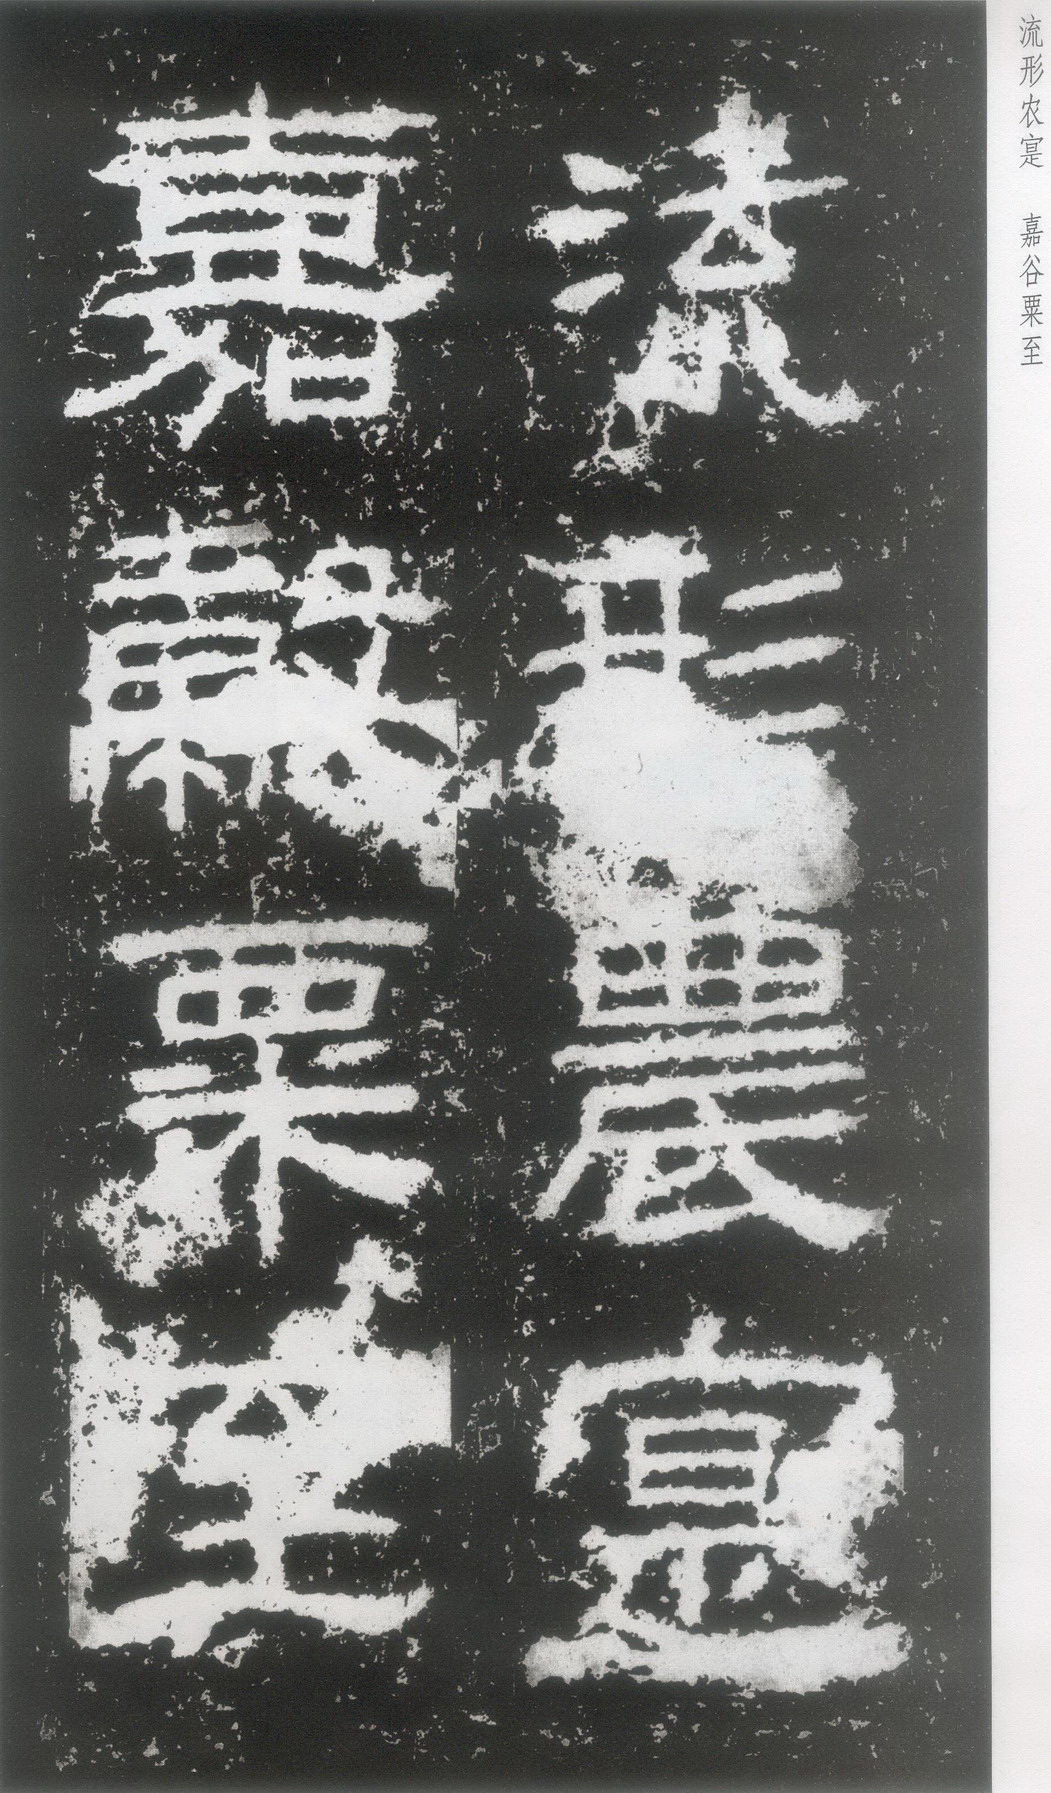 流形农寔　嘉谷粟至
流形農寔
嘉穀粟至